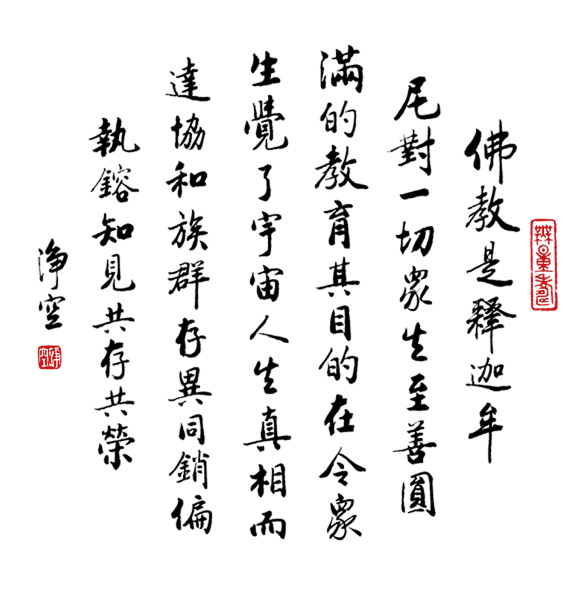 無量壽
佛教是釋迦牟
尼對一切眾生至善圓
滿的教育其目的在令眾
生覺了宇宙人生真相而
達協和族群存異同銷偏
執鎔知見共存共榮
淨空